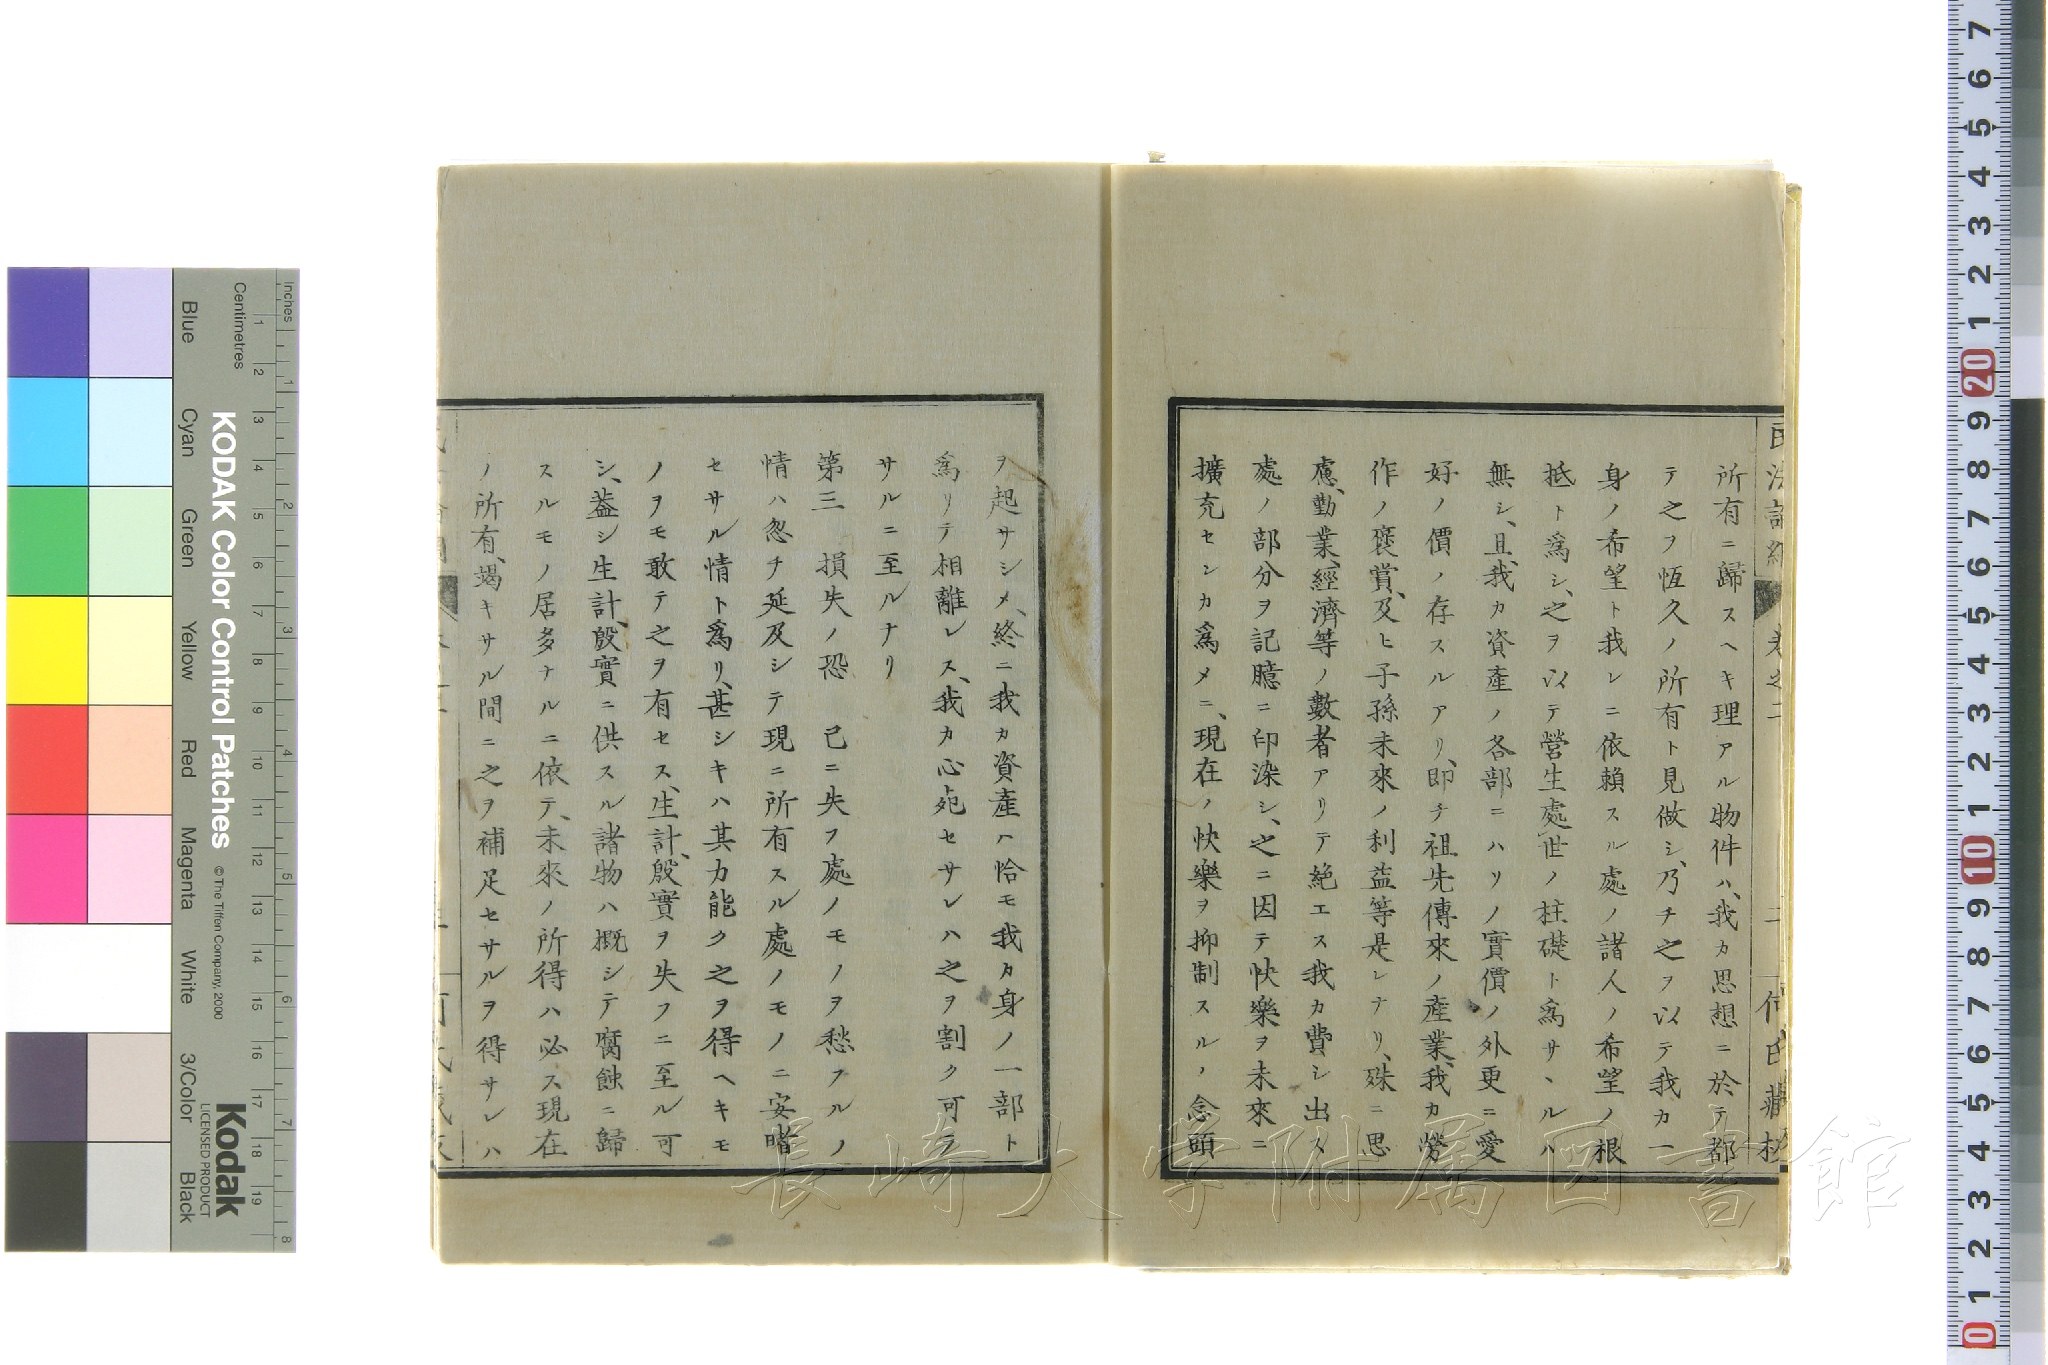 所有ニ歸スヘキ理アル物件ハ、我カ思想ニ於テ都
テ之ヲ恆久ノ所有ト見做シ、乃チ之ヲ以テ我カ一
身ノ希望ト我レニ依賴スル處ノ諸人ノ希望ノ根
抵ト爲シ、之ヲ以テ營生處世ノ柱礎ト爲サヽルハ
無シ、且我カ資產ノ各部ニハソノ實價ノ外更ニ愛
好ノ價ノ存スルアリ、即チ祖先傳來ノ產業、我カ勞
作ノ褒賞、及ヒ子孫未來ノ利益等是レナリ、殊ニ思
慮、勤業、經濟等ノ數者アリテ絶エス我カ費シ出ス
處ノ部分ヲ記臆ニ印染シ、之ニ因テ快樂ヲ未來ニ
擴充センカ爲メニ、現在ノ快樂ヲ抑制スルノ念頭
ヲ起サシメ、終ニ我カ資產ハ恰モ我カ身ノ一部ト
爲リテ相離レス、我カ心死セサレハ之ヲ割ク可ラ
サルニ至ルナリ
第三 損失ノ恐 已ニ失フ處ノモノヲ愁フルノ
情ハ忽チ延及シテ現ニ所有スル處ノモノニ安堵
セサル情ト爲リ、甚シキハ其力能ク之ヲ得ヘキモ
ノヲモ敢テ之ヲ有セス、生計、殷實ヲ失フニ至ル可
シ、蓋シ生計、殷實ニ供スル諸物ハ概シテ腐蝕ニ歸
スルモノ居多ナルニ依テ、未來ノ所得ハ必ス現在
ノ所有、竭キサル間ニ之ヲ補足セサルヲ得サレハ
卷之二
二
何氏藏板
長崎大学附属図書館
Inches
Centimetres
KODAK Color Control Patches
© The Tiffen Company, 2000
Blue
Cyan
Green
Yellow
Red
Magenta
White
3/Color
Black
Kodak
LICENSED PRODUCT
1 2 3 4 5 6 7 8 9 10 11 12 13 14 15 16 17 18 19
1 2 3 4 5 6 7 8
7 6 5 4 3 2 1 20 9 8 7 6 5 4 3 2 1 10 9 8 7 6 5 4 3 2 1 0